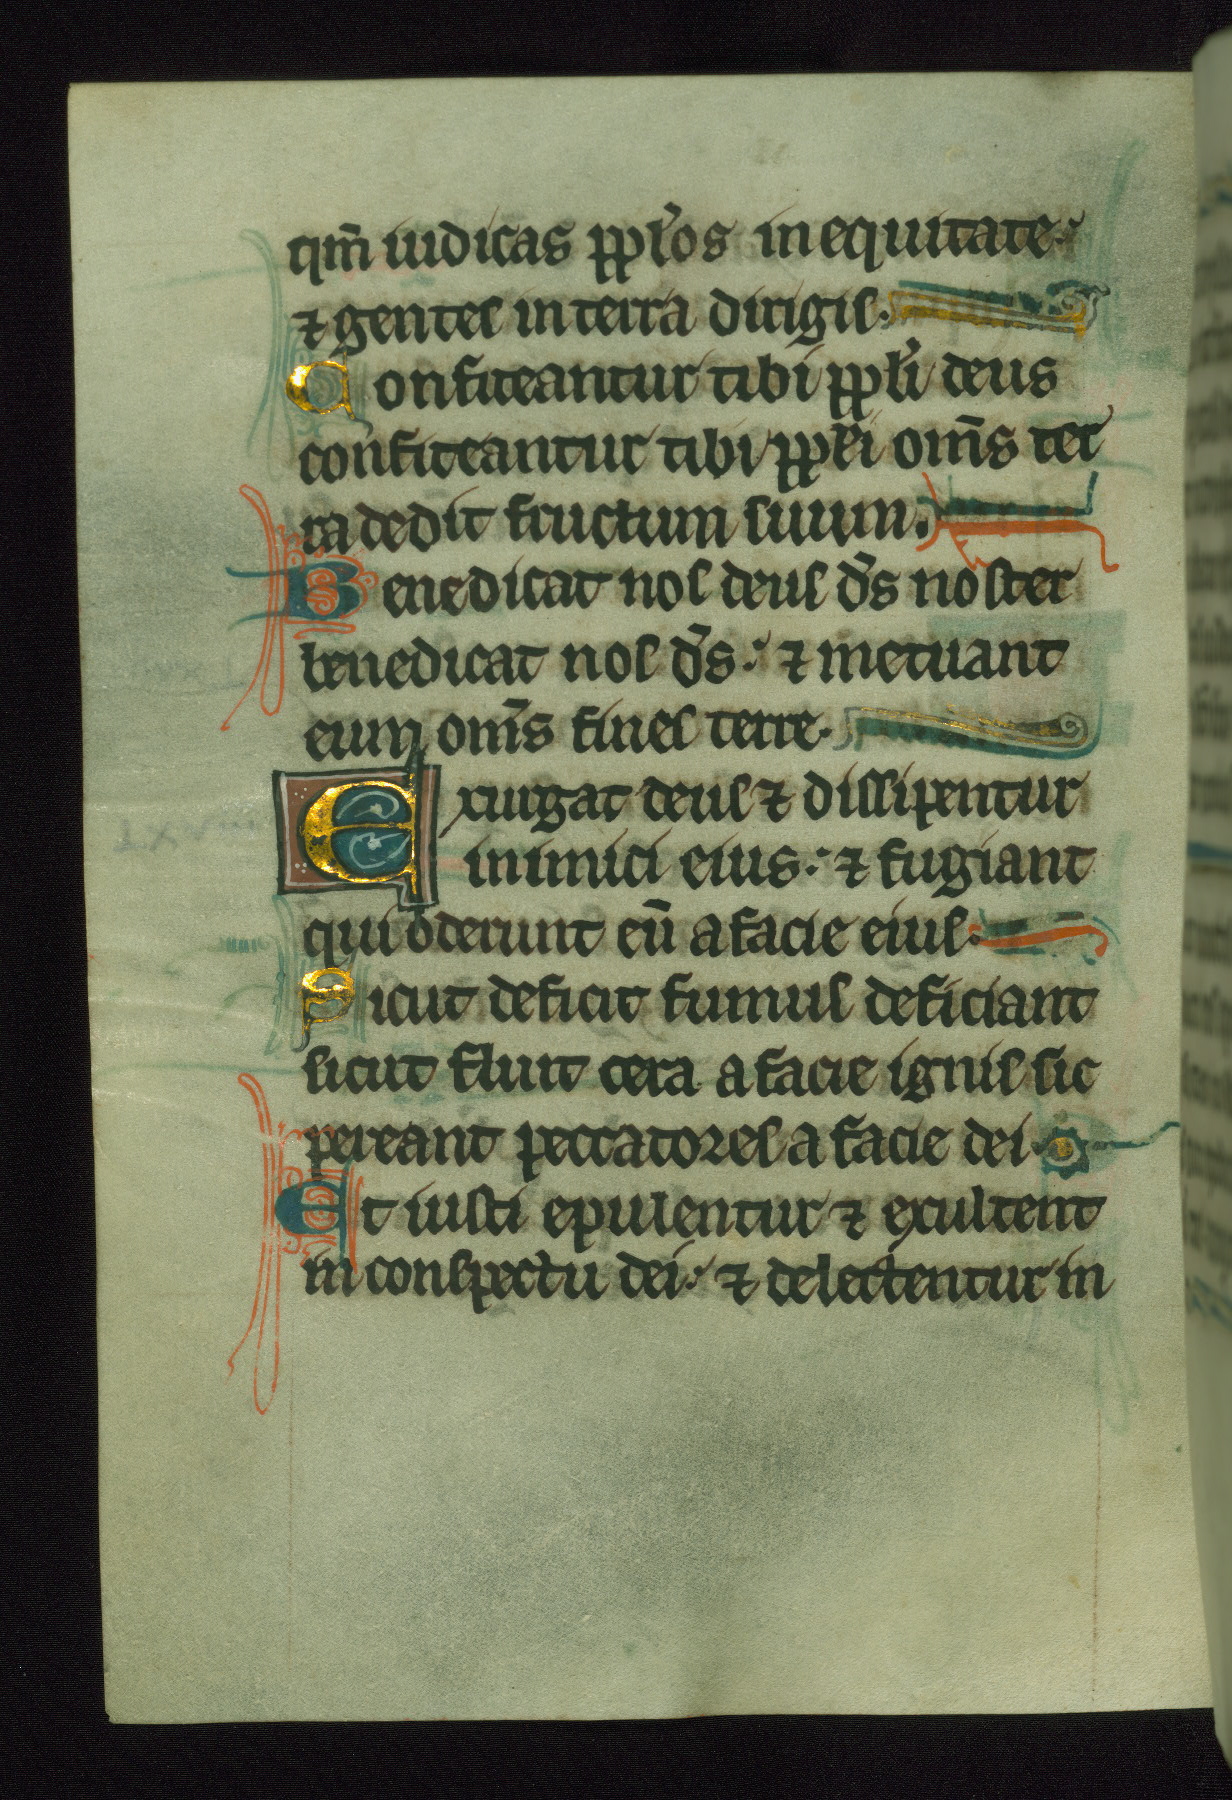 qm̄ iudicas ppl̓os in equitate·
⁊ gentes in terra dirigis.
Confiteantur tibi ppl̓i deus
confiteantur tibi ppl̓i om̄s ter
ra dedit fructum suum.
Benedicat nos deus d̓s noster
benedicat nos d̓s· ⁊ metuant
eum om̄s fines terre·
Exurgat deus ⁊ dissipentur
inimici eius· ⁊ fugiant
qui oderunt eū a facie eius·
Sicut deficit fumus deficiant
sicut fluit cera a facie ignis sic
pereant peccatores a facie dei·
Et iusti epulentur ⁊ exultent
in conspectu dei· ⁊ delectentur in